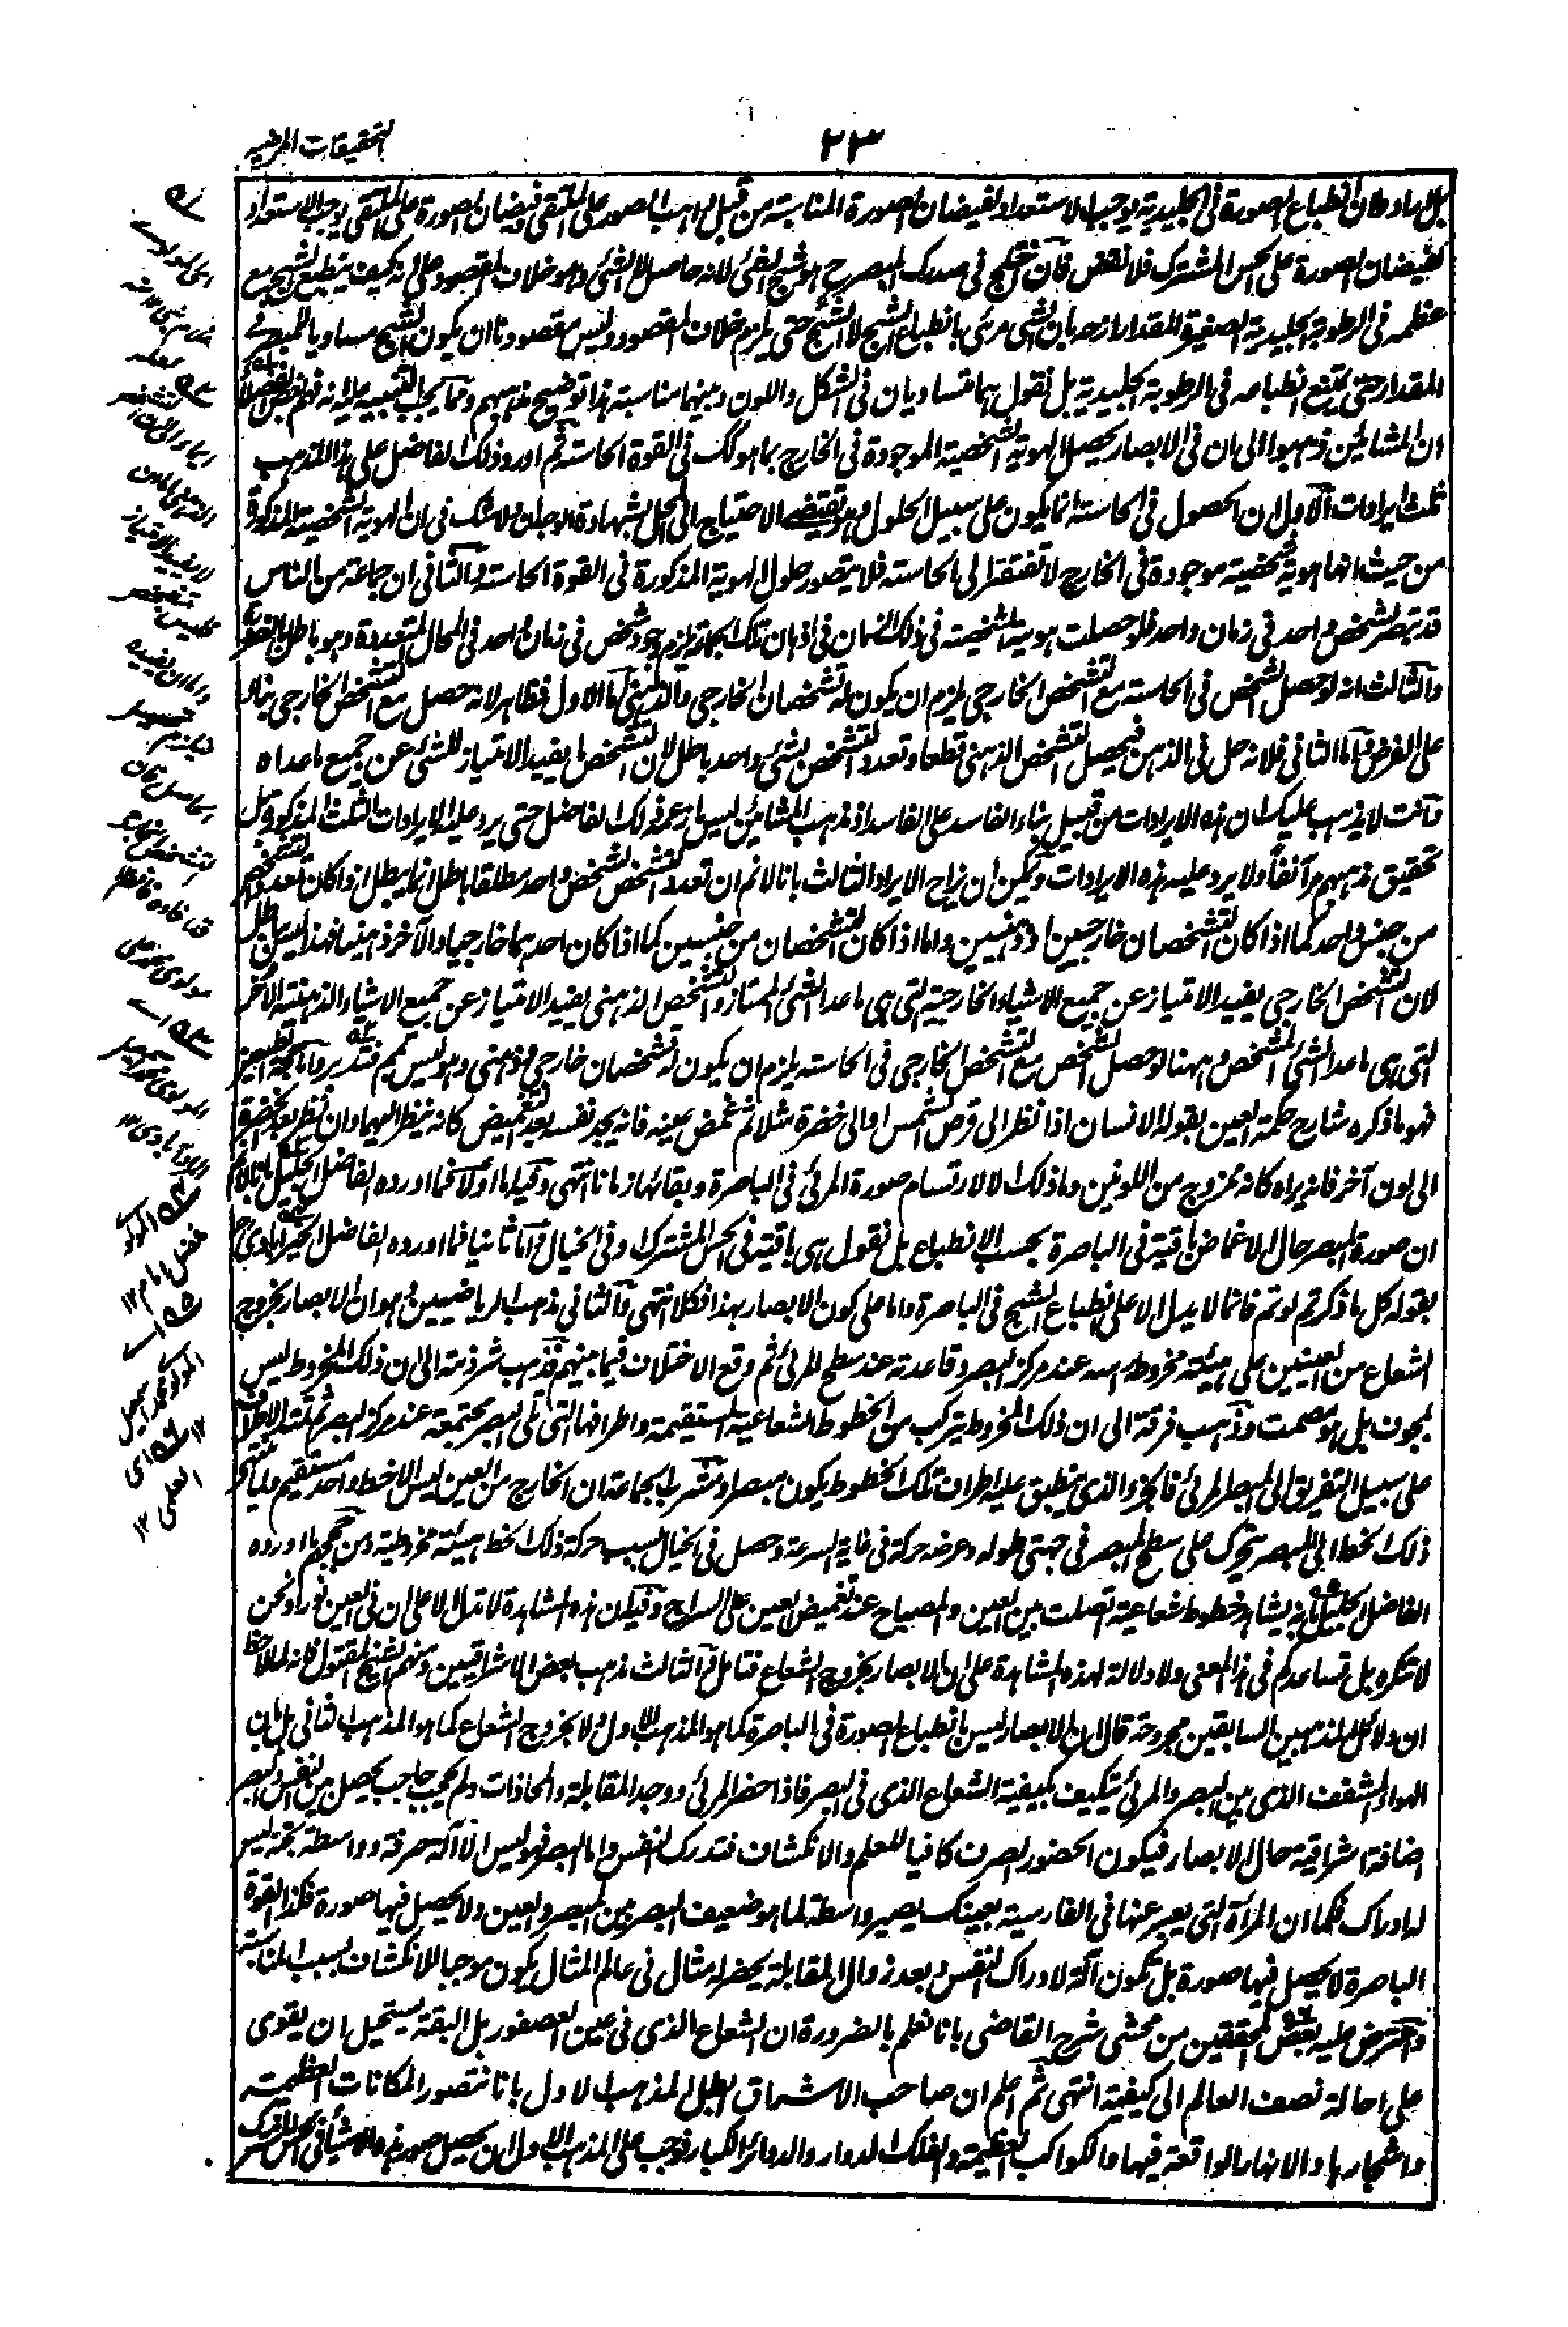 ٢٣
التحقيقات المرضيه
بل ارادوا ان انطباع الصورة فى الجليدية يوجب الاستعداد لفيضان الصورة المناسبة من قبل واهب الصور على الملتقى وفيضان الصورة على الملتقى يوجب الاستعداد
لفيضان الصورة على الحس المشترك فلا نقض فان اختلج فى صدرك ان المبصر ح هو شبح الشئ لانه حاصل لا الشئ وهو خلاف المقصود على انه كيف ينطبع الشبح مع
عظمه فى الرطوبة الجليدية الصغيرة المقدار ازحه بان الشئ مرئى بانطباع الشبح لا الشبح حتى يلزم خلاف المقصود وليس مقصودنا ان يكون الشبح مساويا للمبصر فى
المقدار حتى يمتنع انطباعه فى الرطوبة الجليدية بل نقول هما متساويان فى الشكل واللون وبينهما مناسبة هذا توضيح مذهبهم ومما يجب التنبيه عليه انه فهم بعض الفضلاء
ان المشائين ذهبوا الى ان فى الابصار يحصل الهوية الشخصية الموجودة فى الخارج بما هو كك فى القوة الحاسة ثم اورد ذلك الفاضل على هذا المذهب
ثلث ايرادات الاول ان الحصول فى الحاسة انما يكون على سبيل الحلول وهو تقتضى الاحتياج الى المحل بشهادة الوجدان ولا شك فى ان الهوية الشخصية المذكورة
من حيث انها هوية شخصية موجودة فى الخارج لا تفتقر الى الحاسة فلا يتصور حلول الهوية المذكورة فى القوة الحاسة والثانى ان جماعة من الناس
قد تبصر شخص واحد فى زمان واحد فلو حصلت هويته الشخصية فى ذلك الزمان فى اذهان تلك الجماعة يلزم وجود شخص فى زمان واحد فى المحال المتعددة وهو باطل بالضرورة
والثالث انه لو حصل الشخص فى الحاسة مع التشخص الخارجى يلزم ان يكون له تشخصان الخارجى والذهنى اما الاول فظاهر لانه حصل مع التشخص الخارجى بناء
على الفرض واما الثانى فلانه حل فى الذهن فيحصل التشخص الذهنى قطعا وتعدد التشخص لشئ واحد باطل لان التشخص ما يفيد الامتياز للشئ عن جميع ما عداه
وانت لا يذهب عليك ان هذه الايرادات من قبيل بناء الفاسد على الفاسد اذ مذهب المشائين ليس ما زعمه ذلك الفاضل حتى يرد عليه الايرادات الثلث المذكورة بل
تحقيق مذهبهم مر آنفا ولا يرد عليه هذه الايرادات ويمكن ان يزاح الايراد الثالث بانا لا نم ان تعدد التشخص لشخص واحد مطلقا باطل انما يبطل اذا كان تعدد التشخص
من جنس واحد كما اذا كان التشخصان خارجيين او ذهنيين واما اذا كان التشخصان من جنسين كما اذا كان احدهما خارجيا والآخر ذهنيا فهذا ليس بباطل
لان التشخص الخارجى يفيد الامتياز عن جميع الاشياء الخارجية التى هى ما عدا الشئ الممتاز والتشخص الذهنى يفيد الامتياز عن جميع الاشياء الذهنية الأخر
التى هى ما عدا الشئ المتشخص وههنا لو حصل الشخص مع التشخص الخارجى فى الحاسة يلزم ان يكون له تشخصان خارجى وذهنى وهو ليس بمم فتدبر واما حجة الطبعيين
فهو ما ذكره شارح حكمة العين بقوله الانسان اذا نظر الى قرص الشمس او الى خضرة مثلا ثم غمض عينه فانه يجد نفسه بعد التغميض كانه ينظر اليهما وان نظر بعد الخضرة
الى لون آخر فانه يراه كانه ممزوج من اللونين وما ذلك الا لارتسام صورة المرئى فى الباصرة وبقائها زمانا انتهى وفيه اما اولا فما اورده الفاضل الجليل بانا لا نم
ان صورة المبصر حال الاغماض باقية فى الباصرة بحسب الانطباع بل نقول هى باقية فى الحس المشترك او فى الخيال واما ثانيا فما اورده الفاضل الخيرابادى
بقوله كل ما ذكرتم لو تم فانما لا يدل الا على انطباع الشبح فى الباصرة واما على كون الابصار بهذا فكلا انتهى والثانى مذهب الرياضيين وهو ان الابصار بخروج
الشعاع من العينين على هيئة مخروط راسه عند مركز البصر وقاعدته عند سطح المرئى ثم وقع الاختلاف فيما بينهم فذهب شرذمة الى ان ذلك المخروط ليس
بمجوف بل هو مصمت وذهب فرقة الى ان ذلك المخروط يتركب من الخطوط الشعاعية المستقيمة واطرافها التى تلى البصر مجتمعة عند مركز البصر ثم تمتد الاطراف
على سبيل التفريق الى المبصر المرئى فالجزء الذى ينطبق عليه اطراف تلك الخطوط يكون مبصرا ومشرب الجماعة ان الخارج من العين ليس الا خط واحد مستقيم وليا ينتهى
ذلك الخط الى المبصر يتحرك على سطح المبصر فى جهتى طوله وعرضه حركة فى غاية السرعة وحصل فى الخيال بسبب حركة ذلك الخط هيئة مخروطية ومن حججهم ما اورده
الفاضل الجليل بانه يشاهد خطوط شعاعية اتصلت بين العين والمصباح عند تغميض العين على السراج وفيه ان هذه المشاهدة لا تدل الا على ان فى العين نورا ونحن
لا ننكره بل تساعدكم فى هذا المعنى ولا دلالة لهذه المشاهدة على ان الابصار بخروج الشعاع فتامل والثالث مذهب بعض الاشراقيين ومنهم الشيخ المقتول فانه لما لاحظ
ان دلائل المذهبين السابقين مجروحة قال ان الابصار ليس بانطباع الصورة فى الباصرة كما هو المذهب الاول ولا بخروج الشعاع كما هو المذهب الثانى بل بان
الهواء المشفف الذى بين البصر والمرئى يتكيف بكيفية الشعاع الذى فى البصر فاذا حضر المرئى ووجد المقابلة والمحاذات ولم يحجب حاجب يحصل بين النفس والمبصر
اضافة اشراقية حال الابصار فيكون الحضور الصرف كافيا للعلم والانكشاف فتدرك النفس واما البصر فهو ليس الا آلة صرفة وواسطة بحتة ليس
له ادراك فكما ان المرآة التى يعبر عنها فى الفارسية بعينك يصير واسطة لما هو ضعيف البصر بين المبصر والعين ولا يحصل فيها صورة فكذا القوة
الباصرة لا يحصل فيها صورة بل تكون آلة لادراك النفس وبعد زوال المقابلة يحضر له مثال فى عالم المثال يكون موجبا للانكشاف بسبب المناسبة
واعترض عليه بعض المحققين من محشى شرح القاضى بانا نعلم بالضرورة ان الشعاع الذى فى عين العصفور بل البقة يستحيل ان يقوى
على احالة نصف العالم الى كيفية انتهى ثم اعلم ان صاحب الاشراق ابطل المذهب الاول بانا نتصور المكانات العظيمة
واشجارها والانهار الواقعة فيها والكواكب العظيمة والفلك الدوار والدوائر الكبار فوجب على المذهب الاول ان يحصل صور هذه الاشياء فى الحس المشترك